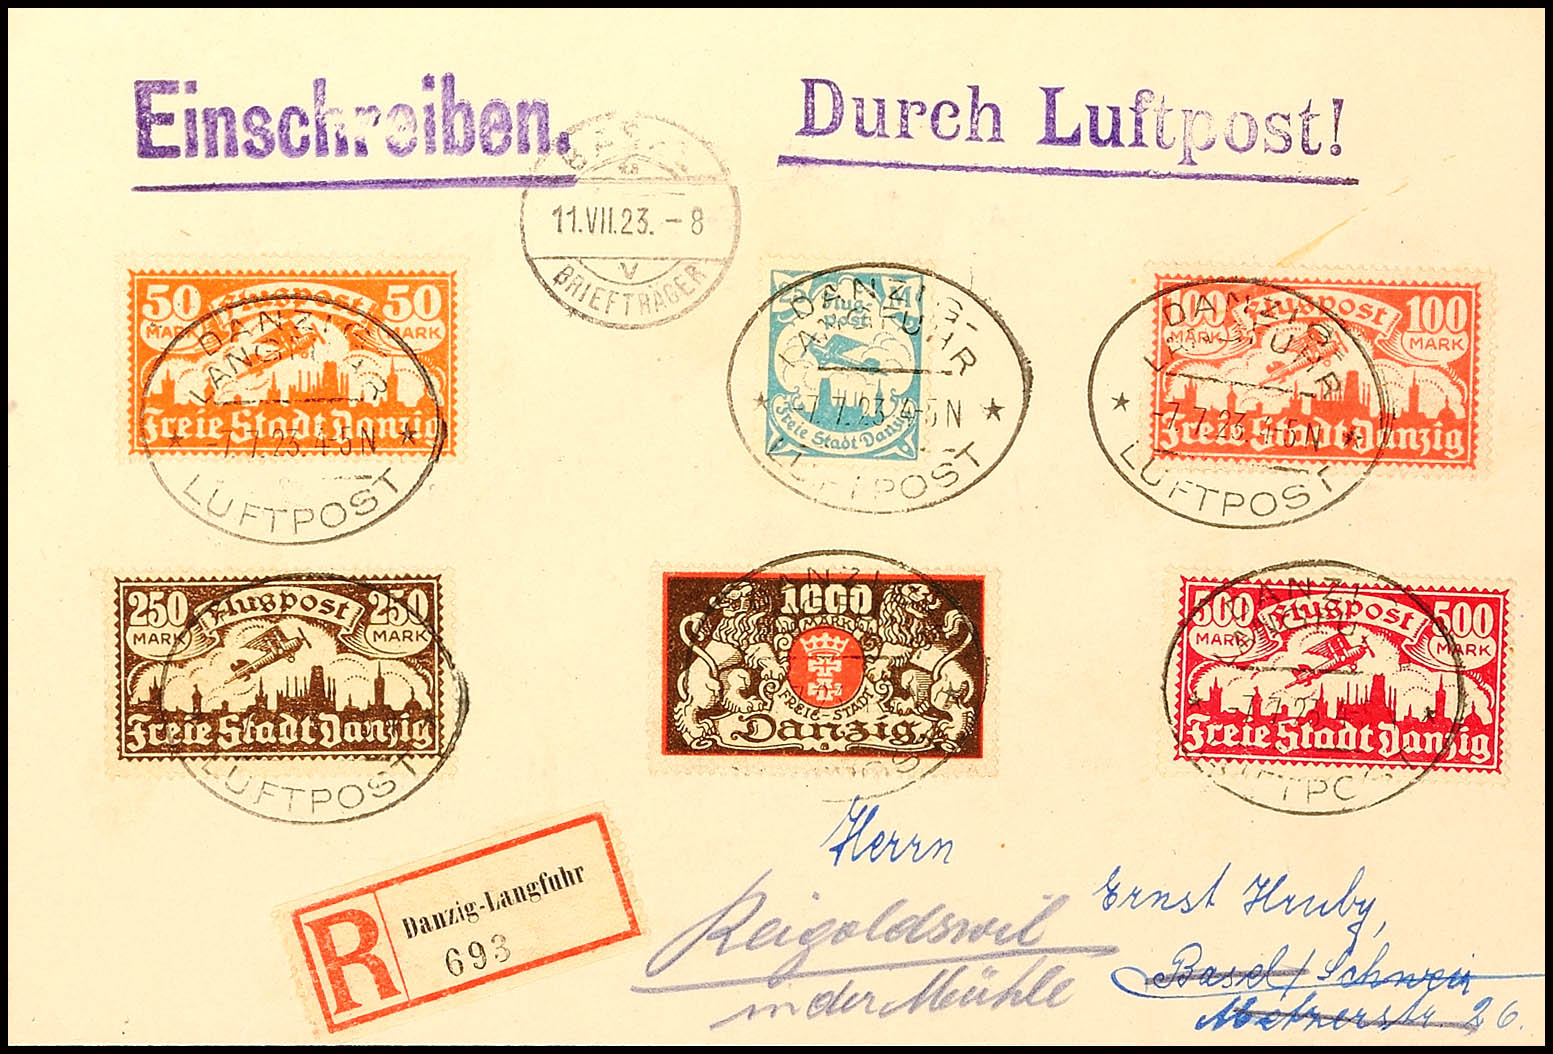 Einschreiben.
Durch Luftpost!
BAS
11.VII.23.-8
V
BRIEFTRÄGER
50 Flugpost 50
MARK MARK
Freie Stadt Danzig
DANZIG-
LANGFUHR
-7.7.23.4-5N
LUFTPOST
Flug-
Post
Freie Stadt Danzig
DANZIG-
LANGFUHR
-7.7.23.4-5N
LUFTPOST
100 Flugpost 100
MARK MARK
Freie Stadt Danzig
DANZIG-
LANGFUHR
-7.7.23.4-5N
LUFTPOST
250 Flugpost 250
MARK MARK
Freie Stadt Danzig
LUFTPOST
1000
MARK
FREIE-STADT
Danzig
500 Flugpost 500
MARK MARK
Freie Stadt Danzig
DANZI
-7.7.23.4
R
Danzig-Langfuhr
693
Herrn
Ernst Hruby,
Basel/Schweiz
Metzerstr. 26.
Reigoldswil
in der Mühle